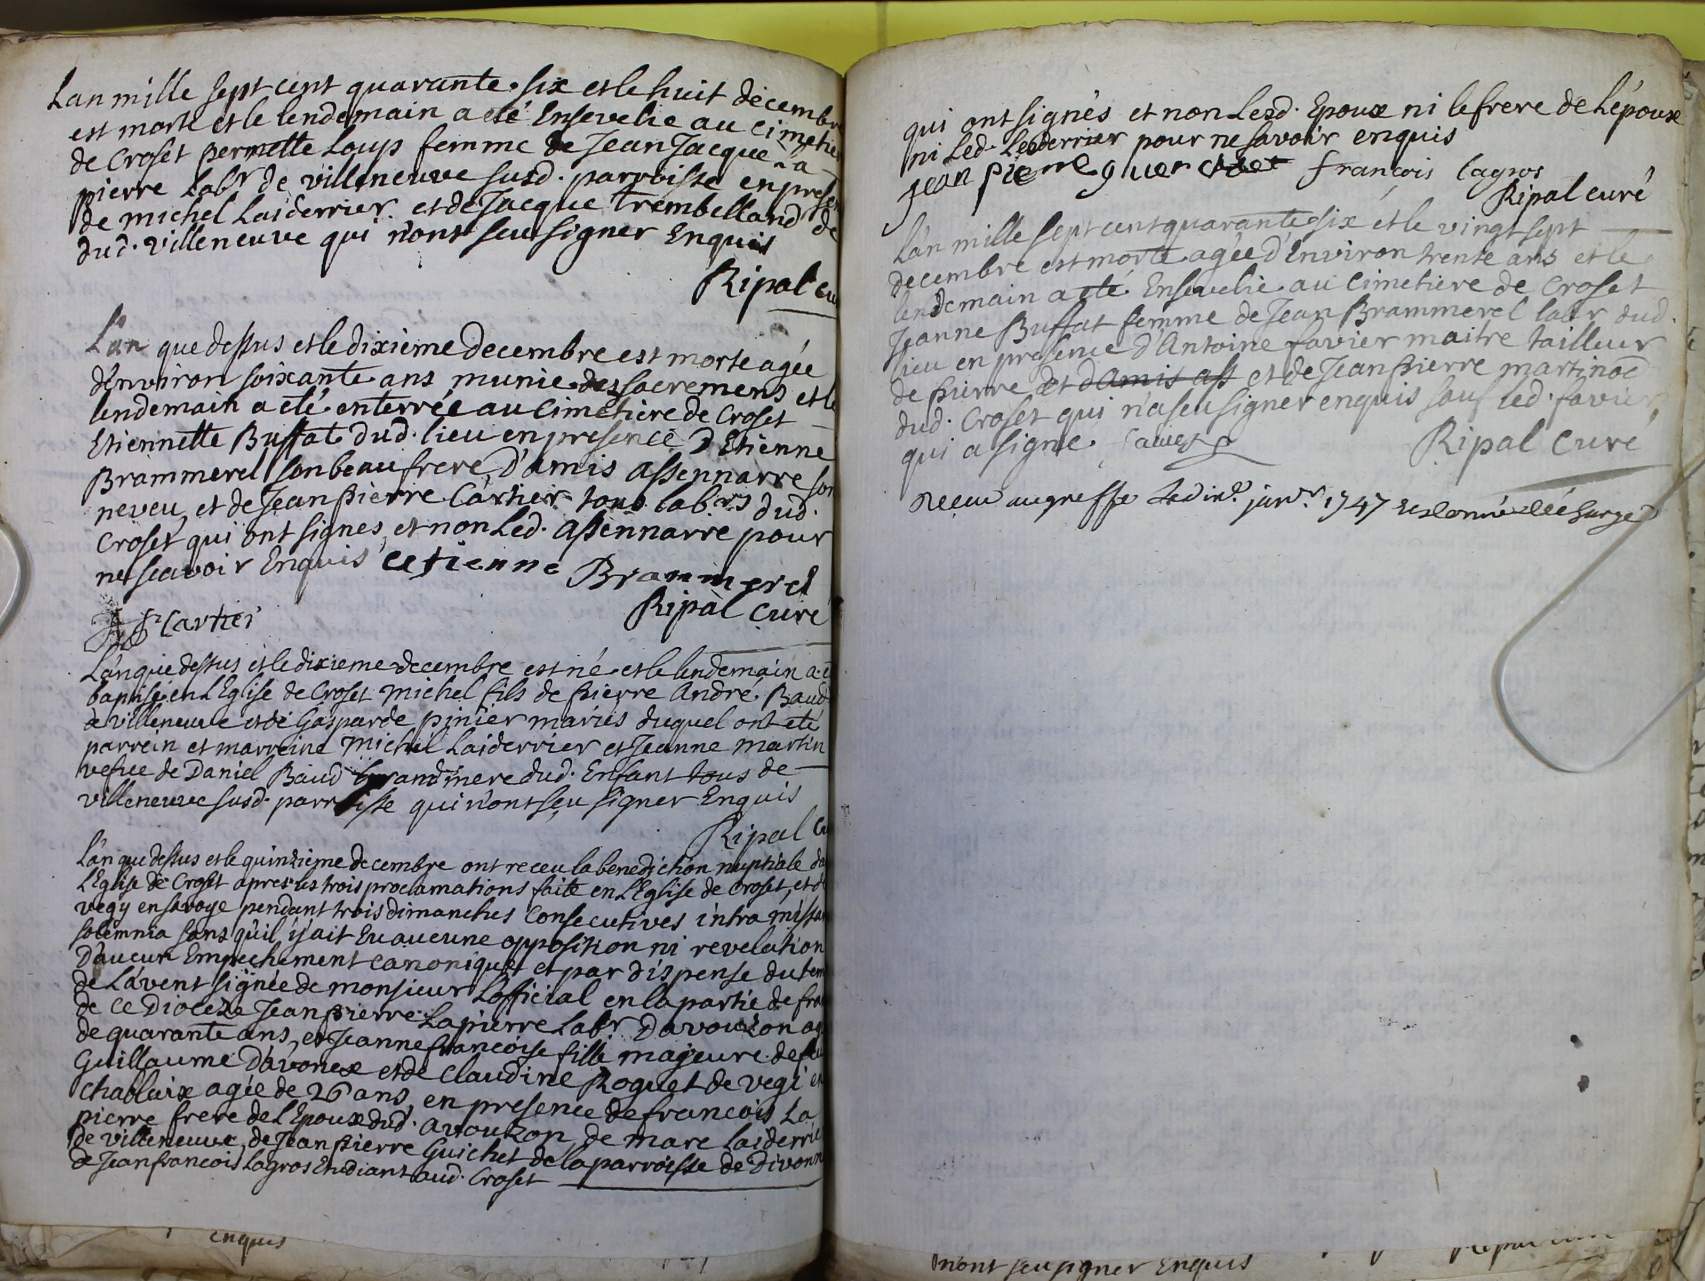 Lan mille sept cent quarante six et le huit decembre
est morte et le lendemain a eté Ensevelie au cimetie
de Croset pernette Loup femme de Jean Jacque La
pierre Labr de villeneuve susd. parroisse en prese
de michel Laiderrier et de Jacque Trembelland de
dud. villeneuve qui n'ont seu signer Enquis
Ripal cu
L'an que dessus et le dixième decembre est morte agée
d'environ soixante ans munie des sacremens et le
lendemain a eté enterrée au Cimetière de Croset
Etiennette Buffat dud. lieu en presence d'Etienne
Brammerel son beaufrere, d'amis assennarre son
neveu, et de Jean pierre Cartier tous labrs dud.
Croset qui ont signes, et non Led. assennarre pour
ne sçavoir Enquis etienne Brammerel
Ripal Curé
Cartier
L'an que dessus et le dixieme decembre est né et le lendemain a e
baptisé en L'Eglise de Croset michel fils de pierre André Baud
de villeneuve et de Gasparde pinier mariés duquel ont eté
parrein et marreine michel Laiderrier et Jeanne martin
vefue de Daniel Baud grand mere dud. Enfant tous de
villeneuve susd. parroisse qui n'ont seu signer Enquis
Ripal Cu
L'an que dessus et le quinzieme decembre ont receu la benediction nuptiale da
L'Eglise de Croset apres les trois proclamations faite en L'Eglise de Croset, et d
vegy en savoye pendant trois dimanches Consecutives intra missar
solemnia sans qu'il y ait Eu aucune opposition ni revelation
D'aucun Empechement canonique et par dispense du tem
de L'avent signée de monsieur L'official en la partie de fran
de ce Dioceze Jean pierre Lapierre Labr D'avouzon ag
de quarante ans, et Jeanne francoise fille majeure de feu
Guillaume D'avonex et de Claudine Roguet de vegi en
chablaix agée de 26 ans en presence de francois La
pierre frere de l'Epoux dud. avouzon, de marc laiderrie
de villeneuve, de Jean pierre Guichet de la parroisse de Divonn
de Jean francois Lagros Etudiant aud. Croset
enquis
qui ont signés et non Lesd. Epoux ni le frere de L'époux
ni Led. Leiderrier pour ne savoir enquis
Jean pierre francois lagros
Ripal curé
L'an mille sept cent quarante six et le vingt sept
decembre est morte agée d'Environ trente ans et le
lendemain a eté Ensevelie au Cimetière de Croset
Jeanne Buffat femme de Jean Brammerel labr dud.
lieu en presence d'Antoine favier maitre tailleur
de pierre et d'amis ass et de Jean pierre martinod
dud. Croset qui n'a seu signer enquis sauf Led. favier
qui a signe favier
Ripal Curé
Receu au greffe janvr 1747
n'ont seu signer Enquis